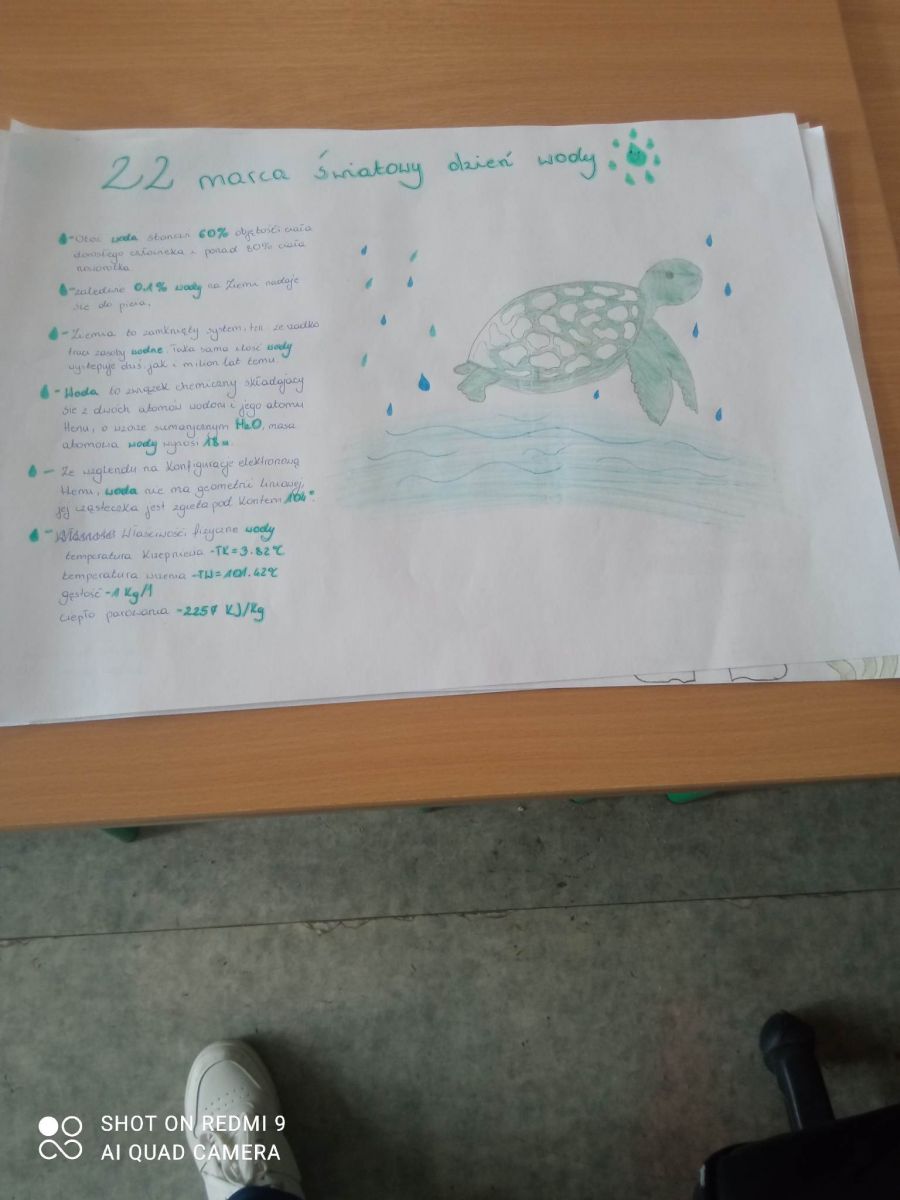 22 marca światowy dzień wody
- Otóż woda stanowi 60% objętości ciała
dorosłego człowieka i ponad 80% ciała
noworodka
- zaledwie 0.1% wody na Ziemi nadaje
się do picia.
- Ziemia to zamknięty system, tzn. że rzadko
traci zasoby wodne. Taka sama ilość wody
występuje dziś jak i milion lat temu.
- Woda to związek chemiczny składający
się z dwóch atomów wodoru i jego atomu
tlenu, o wzorze sumarycznym H2O, masa
atomowa wody wynosi 18u.
- Ze względu na Konfigurację elektronową
tlenu, woda nie ma geometrii liniowej,
jej cząsteczka jest zgięta pod Kontem 104°.
- Właściwości fizyczne wody
temperatura Krzepnięcia -TK=3.82°C
temperatura wrzenia -TW=101.42°C
gęstość -1 Kg/l
ciepło parowania -2257 KJ/Kg
SHOT ON REDMI 9
AI QUAD CAMERA